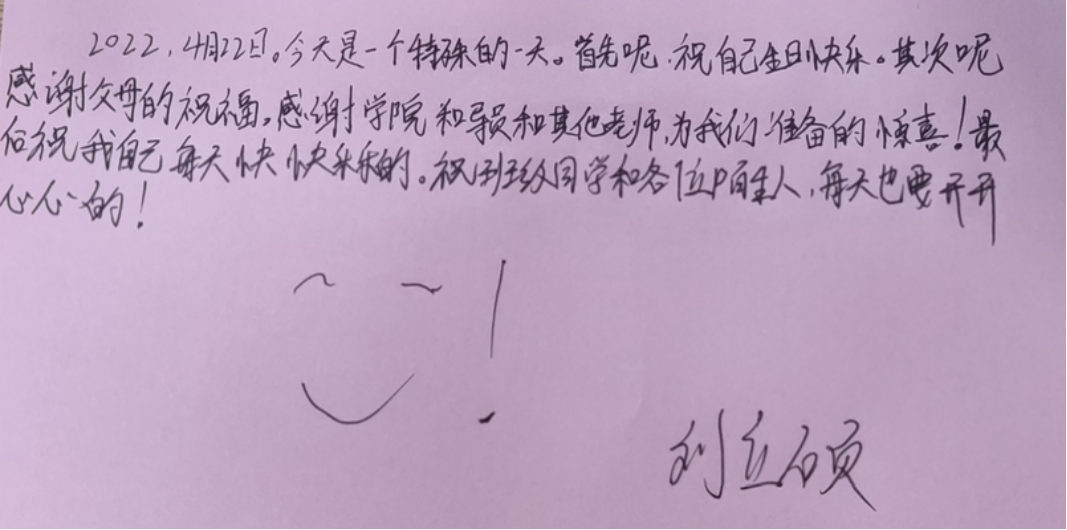 2022,4月22日。今天是一个特殊的一天。首先呢,祝自己生日快乐。其次呢
感谢父母的祝福,感谢学院和导员和其他老师,为我们准备的惊喜!最
后祝我自己每天快快乐乐的。祝班级同学和各位陌生人,每天也要开开
心心的!
!
刘立硕